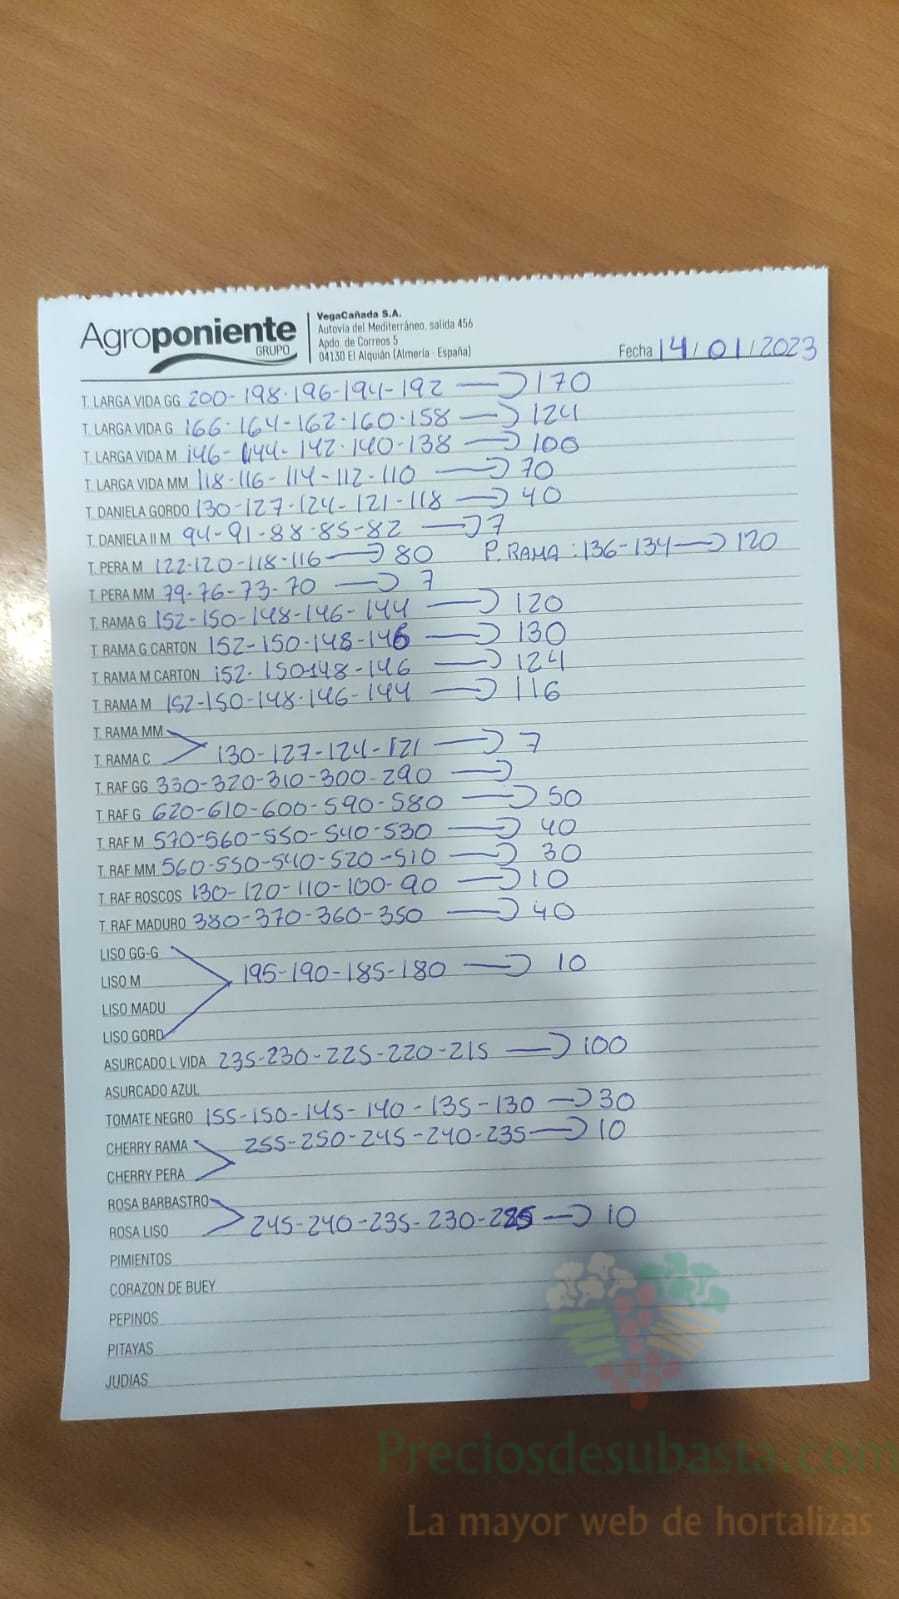 Agroponiente
GRUPO
VegaCañada S.A.
Autovía del Mediterráneo, salida 456
Apdo. de Correos 5
04130 El Alquián (Almería - España)
Fecha 14/01/2023
T. LARGA VIDA GG 200-198-196-194-192 → 170
T. LARGA VIDA G 166-164-162-160-158 → 124
T. LARGA VIDA M 146-144-142-140-138 → 100
T. LARGA VIDA MM 118-116-114-112-110 → 70
T. DANIELA GORDO 130-127-124-121-118 → 40
T. DANIELA II M 94-91-88-85-82 → 7
T. PERA M 122-120-118-116 → 80 P. RAMA: 136-134 → 120
T. PERA MM 79-76-73-70 → 7
T. RAMA G 152-150-148-146-144 → 120
T. RAMA G CARTON 152-150-148-146 → 130
T. RAMA M CARTON 152-150-148-146 → 124
T. RAMA M 152-150-148-146-144 → 116
T. RAMA MM
T. RAMA C 130-127-124-121 → 7
T. RAF GG 330-320-310-300-290 →
T. RAF G 620-610-600-590-580 → 50
T. RAF M 570-560-550-540-530 → 40
T. RAF MM 560-550-540-520-510 → 30
T. RAF ROSCOS 130-120-110-100-90 → 10
T. RAF MADURO 380-370-360-350 → 40
LISO GG-G
LISO M 195-190-185-180 → 10
LISO MADU
LISO GORD
ASURCADO L VIDA 235-230-225-220-215 → 100
ASURCADO AZUL
TOMATE NEGRO 155-150-145-140-135-130 → 30
CHERRY RAMA 255-250-245-240-235 → 10
CHERRY PERA
ROSA BARBASTRO
ROSA LISO 245-240-235-230-225 → 10
PIMIENTOS
CORAZON DE BUEY
PEPINOS
PITAYAS
JUDIAS
Preciosdesubasta.com
La mayor web de hortalizas